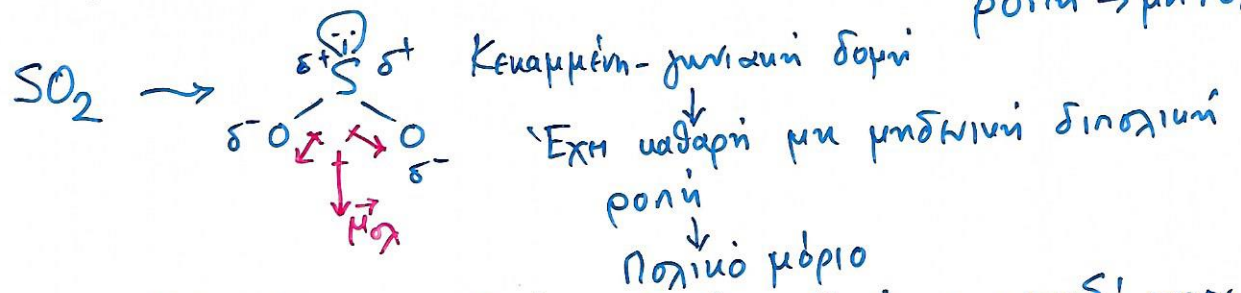 ροπή → μη πο
SO₂ → δ+ S δ+ Κεκαμμένη - γωνιακή δομή
δ- O O δ-
↓
Έχει καθαρή μη μηδενική διπολική
ροπή
μολ
↓
Πολικό μόριο